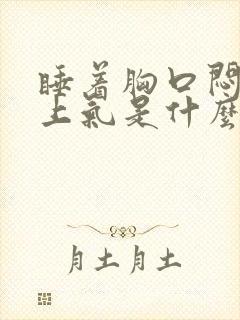 睡着胸口闷
上气是什麼
月土月土